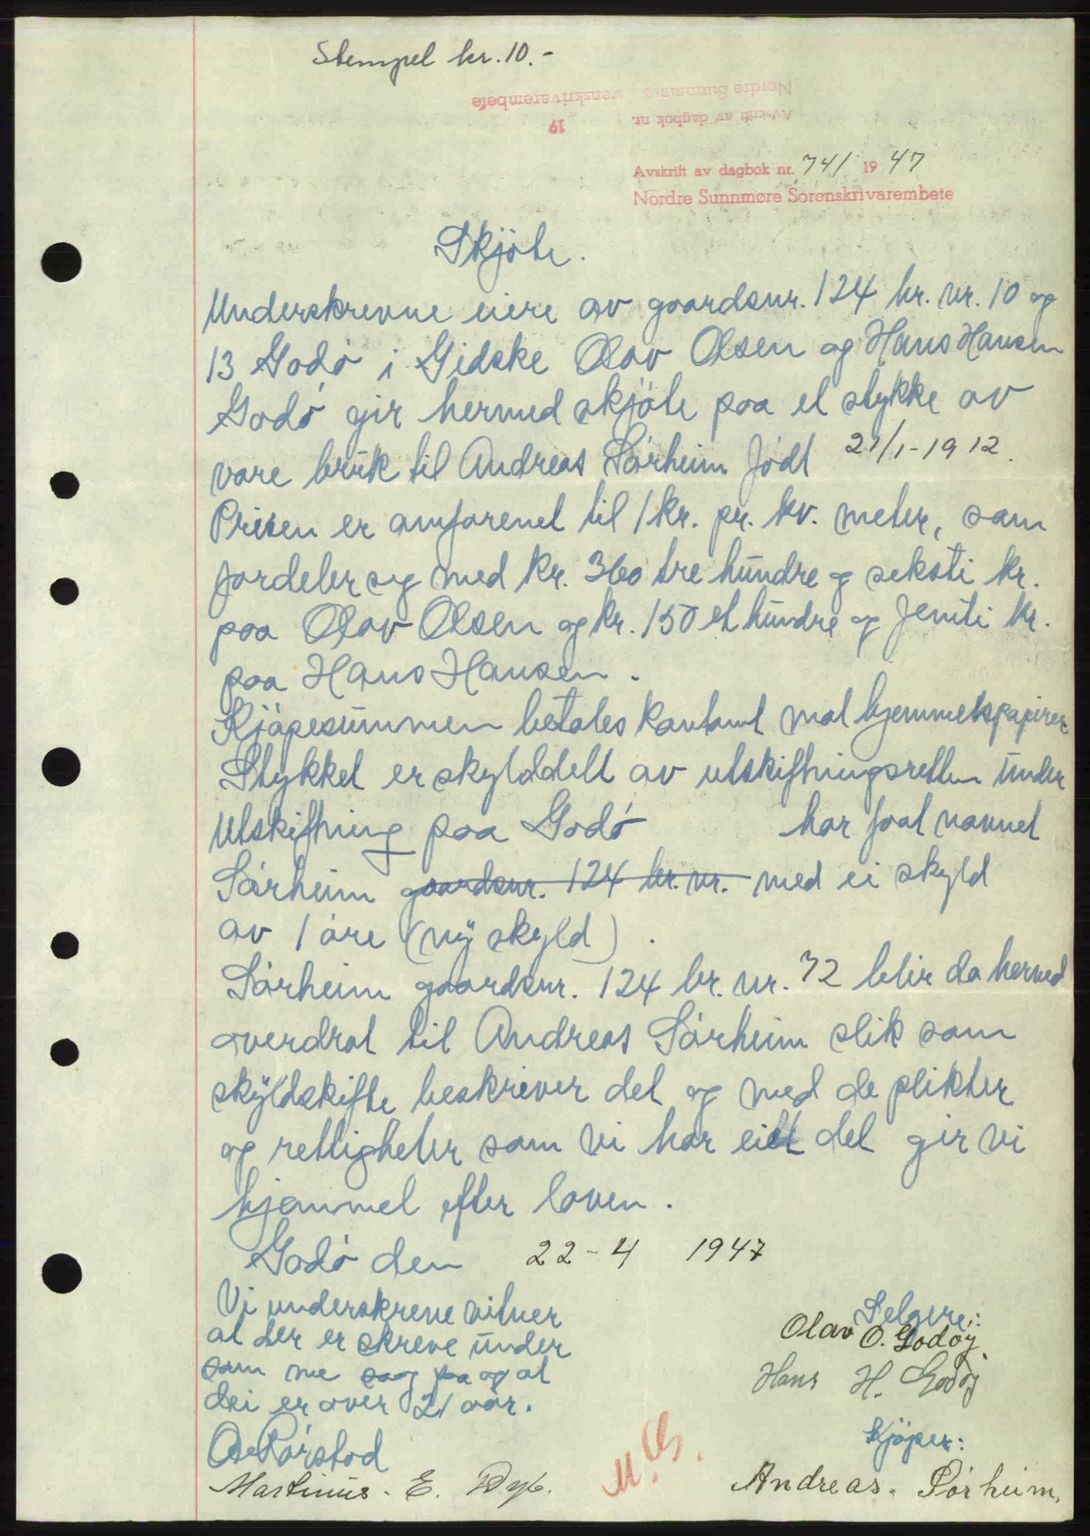 Stempel kr. 10.-
Nordre Sunnmøre Sorenskrivarembete
Avskrift av dagbok nr. 19
Avskrift av dagbok nr. 741 1947
Nordre Sunnmøre Sorenskrivarembete
Skjöte.
Underskrevne eiere av gaardsnr. 124 br. nr. 10 og
13 Godö i Gidske Olav Olsen og Hans Hansen
Godö gir hermed skjöte paa et stykke av
vare bruk til Andreas Sörheim födt 21/1-1912.
Prisen er omforenet til 1 kr. pr. kv. meter, som
fordeler sig med kr. 360 tre hundre og seksti kr.
paa Olav Olsen og kr. 150 et hundre og femti kr.
paa Hans Hansen.
Kjöpesummen betales kontant mot hjemmelspapirer
Stykket er skylddelt av utskiftningsretten under
Utskiftning paa Godö har faat navnet
Sörheim gaardsnr. 124 br. nr. med ei skyld
av 1 öre (ny skyld).
Sörheim gaardsnr. 124 br. nr. 72 blir da hermed
overdrat til Andreas Sörheim slik som
skyldskifte beskriver det og med de plikter
og rettigheter som vi har eiet det gir vi
hjemmel efter loven.
Godö den 22-4 1947
Vi underskrevne vitner
at der er skreve under
som me saag paa og at
dei er over 21 aar.
Selgere:
Olav O. Godøj
Hans H. Godøj
Kjöper:
Martinus. E. Dyb.
M.B.
Andreas. Sörheim.